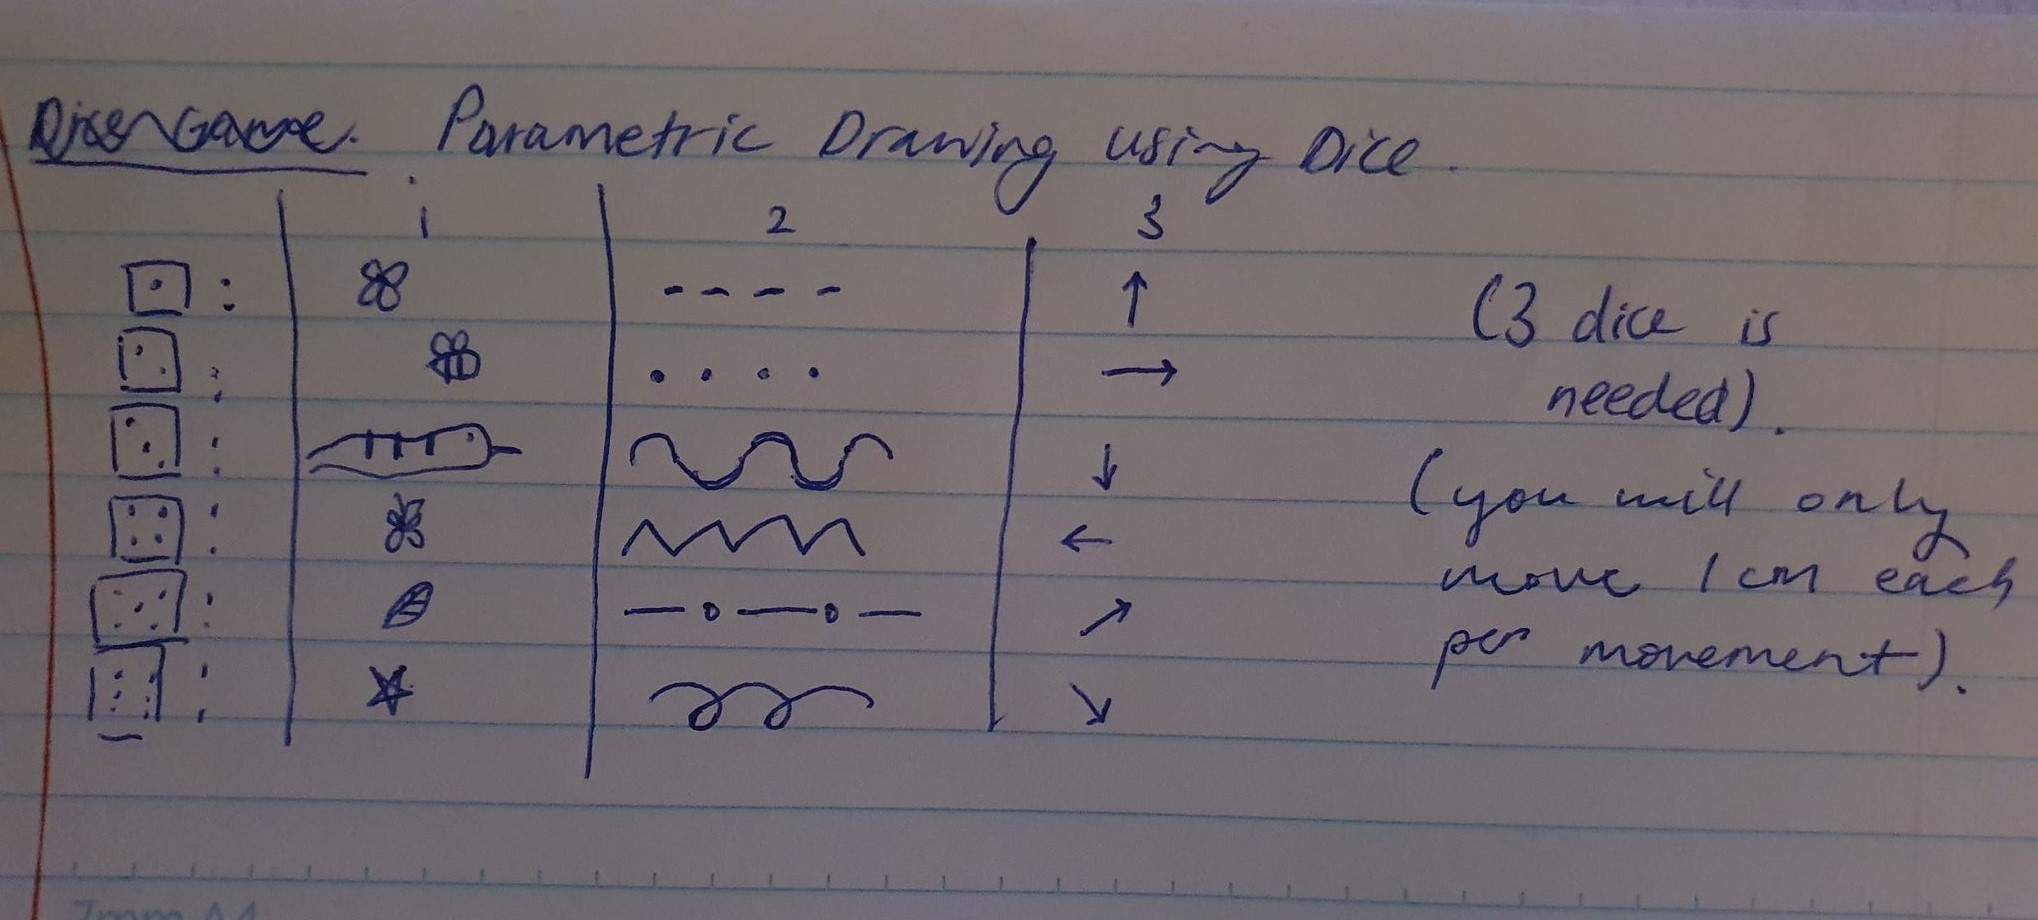 Dice Game. Parametric Drawing using Dice.
1 2 3
(3 dice is
needed).
(you will only
move 1cm each
per movement).
7mm A4